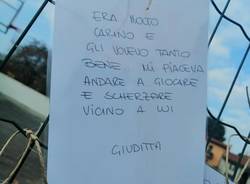 ERA MOLTO
CARINO E
GLI VOLEVO TANTO
BENE MI PIACEVA
ANDARE A GIOCARE
E SCHERZARE
VICINO A LUI
GIUDITTA